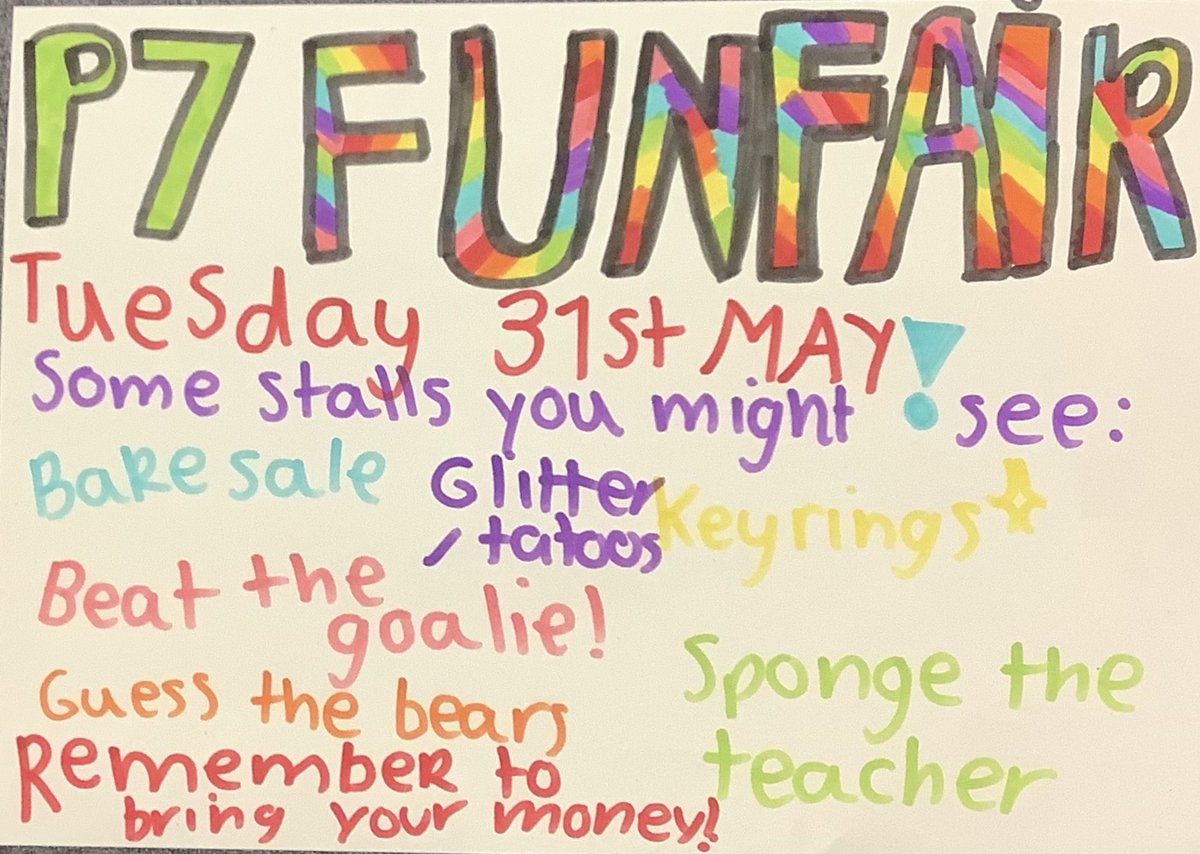 P7 FUNFAIR
Tuesday 31st MAY!
Some stalls you might see:
Bake sale
Glitter
/ tatoos
Keyrings
Beat the
goalie!
Sponge the
teacher
Guess the bears
Remember to
bring your money!